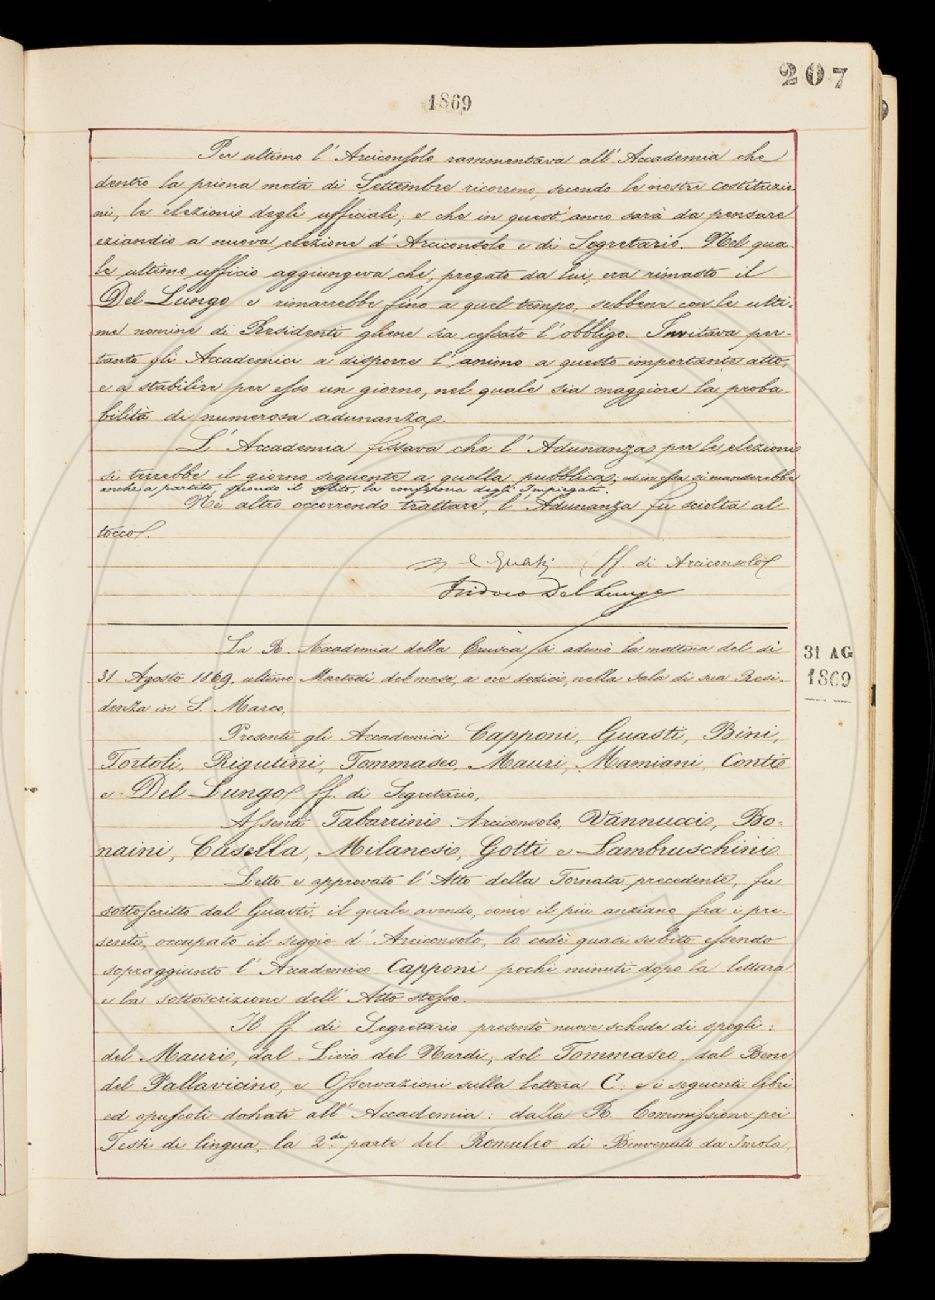 207
1869
Per ultimo l' Arciconsolo rammentava all' Accademia che
dentro la prima metà di Settembre ricorrono, secondo le nostre costituzio-
ni, le elezioni degli ufficiali; e che in quest' anno sarà da pensare
eziandio a nuova elezione d' Arciconsolo e di Segretario. Nel qua-
le ultimo ufficio aggiungeva che, pregato da lui, era rimasto il
Del Lungo e rimarrebbe fino a quel tempo, sebbene con le ulti-
me nomine di Residenti gliene sia cessato l' obbligo. Invitava per-
tanto gli Accademici a disporre l' animo a questo importante atto,
e a stabilire per esso un giorno, nel quale sia maggiore la proba-
bilità di numerosa adunanza.
L' Accademia fissava che l' Adunanza per le elezioni
si terrebbe il giorno seguente a quella pubblica; ed in essa si manderebbe
anche a partito, secondo il solito, la conferma degl' Impiegati.
Nè altro occorrendo trattare, l' Adunanza fu sciolta al
tocco.
C Guasti ff. di Arciconsolo
Isidoro Del Lungo
La R. Accademia della Crusca si adunò la mattina del dì
31 Agosto 1869, ultimo Martedì del mese, a ore dodici, nella Sala di sua Resi-
denza in S. Marco.
31 AG
1869
Presenti gli Accademici Capponi, Guasti, Bini,
Tortoli, Rigutini, Tommaseo, Mauri, Mamiani, Conti
e Del Lungo ff. di Segretario.
Assenti Tabarrini Arciconsolo, Vannucci, Bo-
naini, Casella, Milanesi, Gotti e Lambruschini.
Letto e approvato l' Atto della Tornata precedente, fu
sottoscritto dal Guasti, il quale avendo, come il più anziano fra i pre-
senti, occupato il seggio d' Arciconsolo, lo cedè quasi subito essendo
sopraggiunto l' Accademico Capponi pochi minuti dopo la lettura
e la sottoscrizione dell' Atto stesso.
Il ff. di Segretario presentò nuove schede di spogli:
del Mauri, dal Livio del Nardi; del Tommaseo, dal Bene
del Pallavicino, e Osservazioni sulla lettera C. e i seguenti libri
ed opuscoli donati all' Accademia: dalla R. Commissione pei
Testi di lingua, la 2.da parte del Romuleo di Benvenuto da Imola,